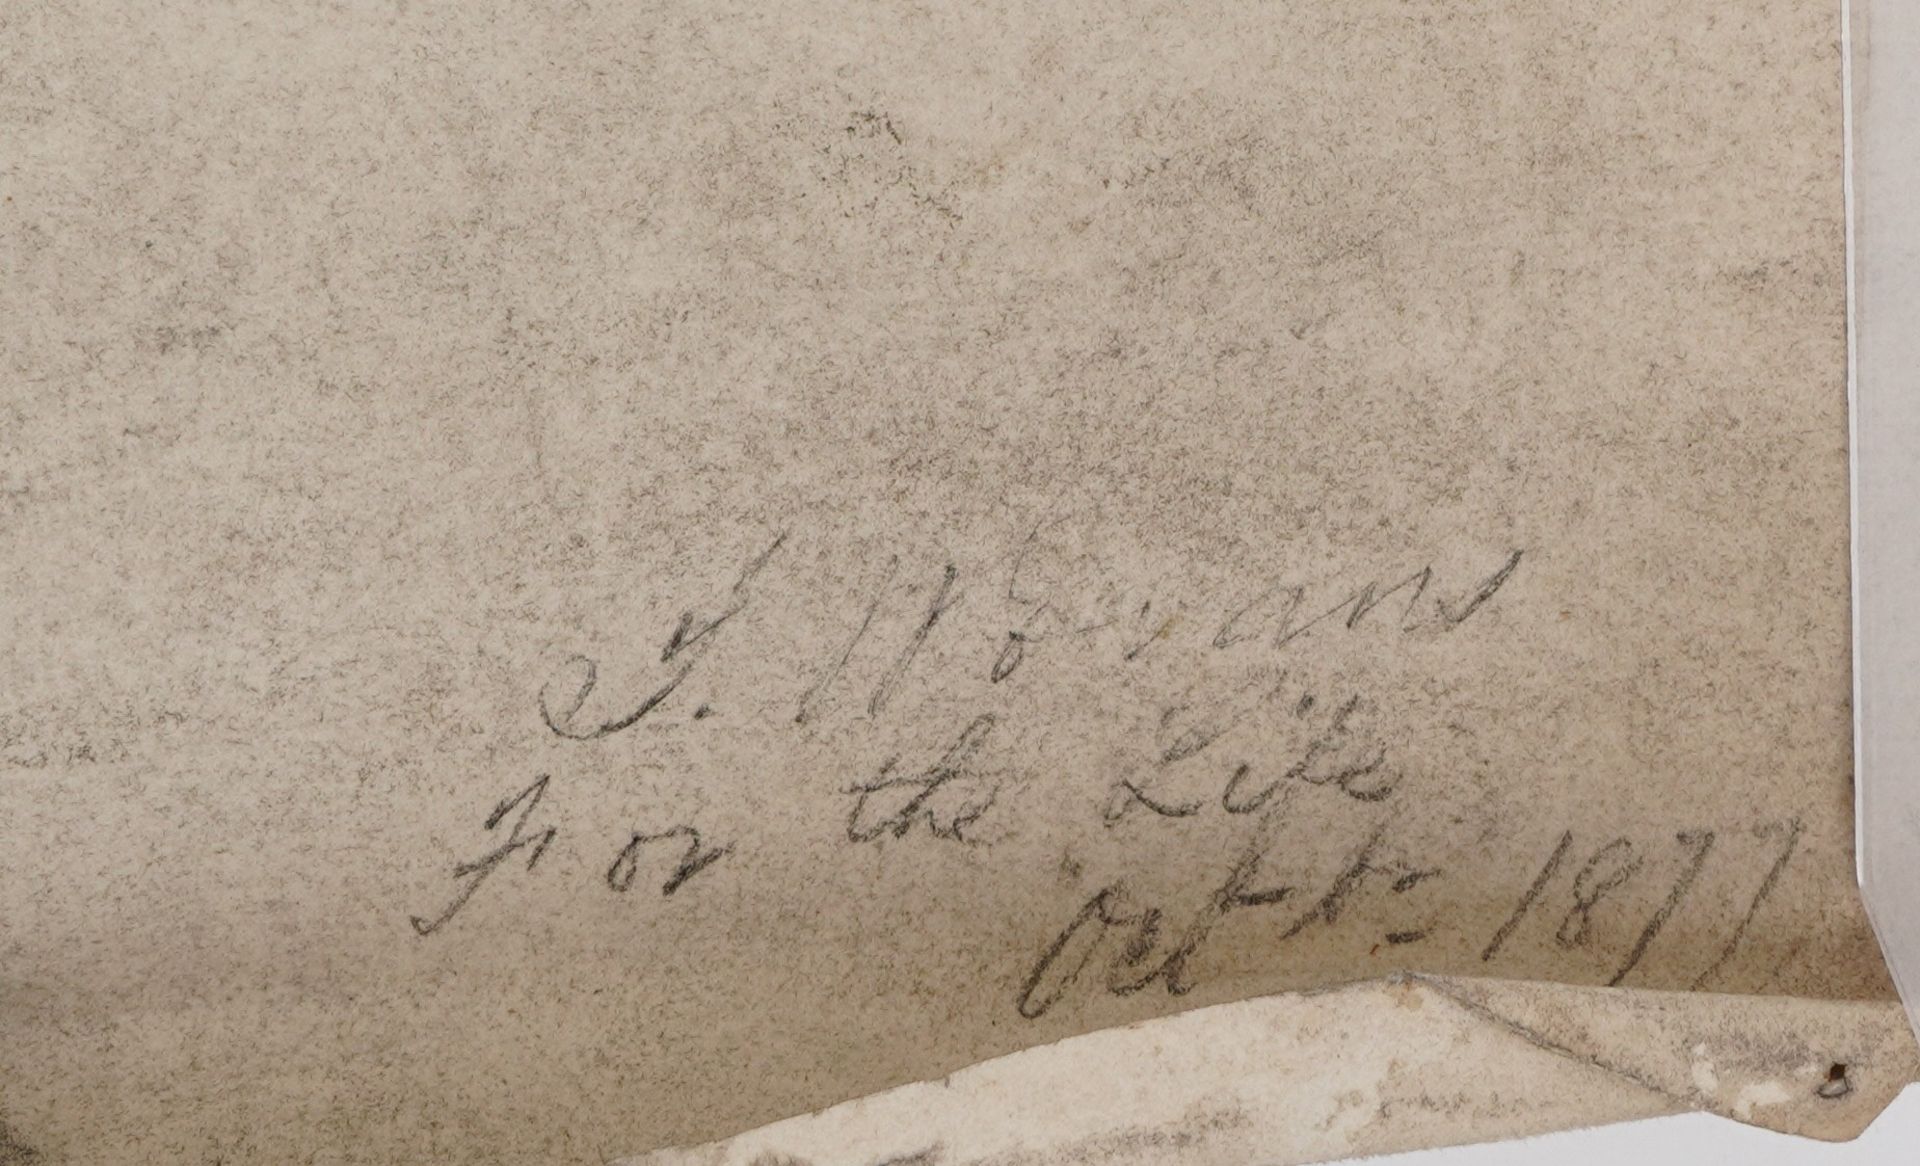 J. H Evans
For the Life
Oct 1877